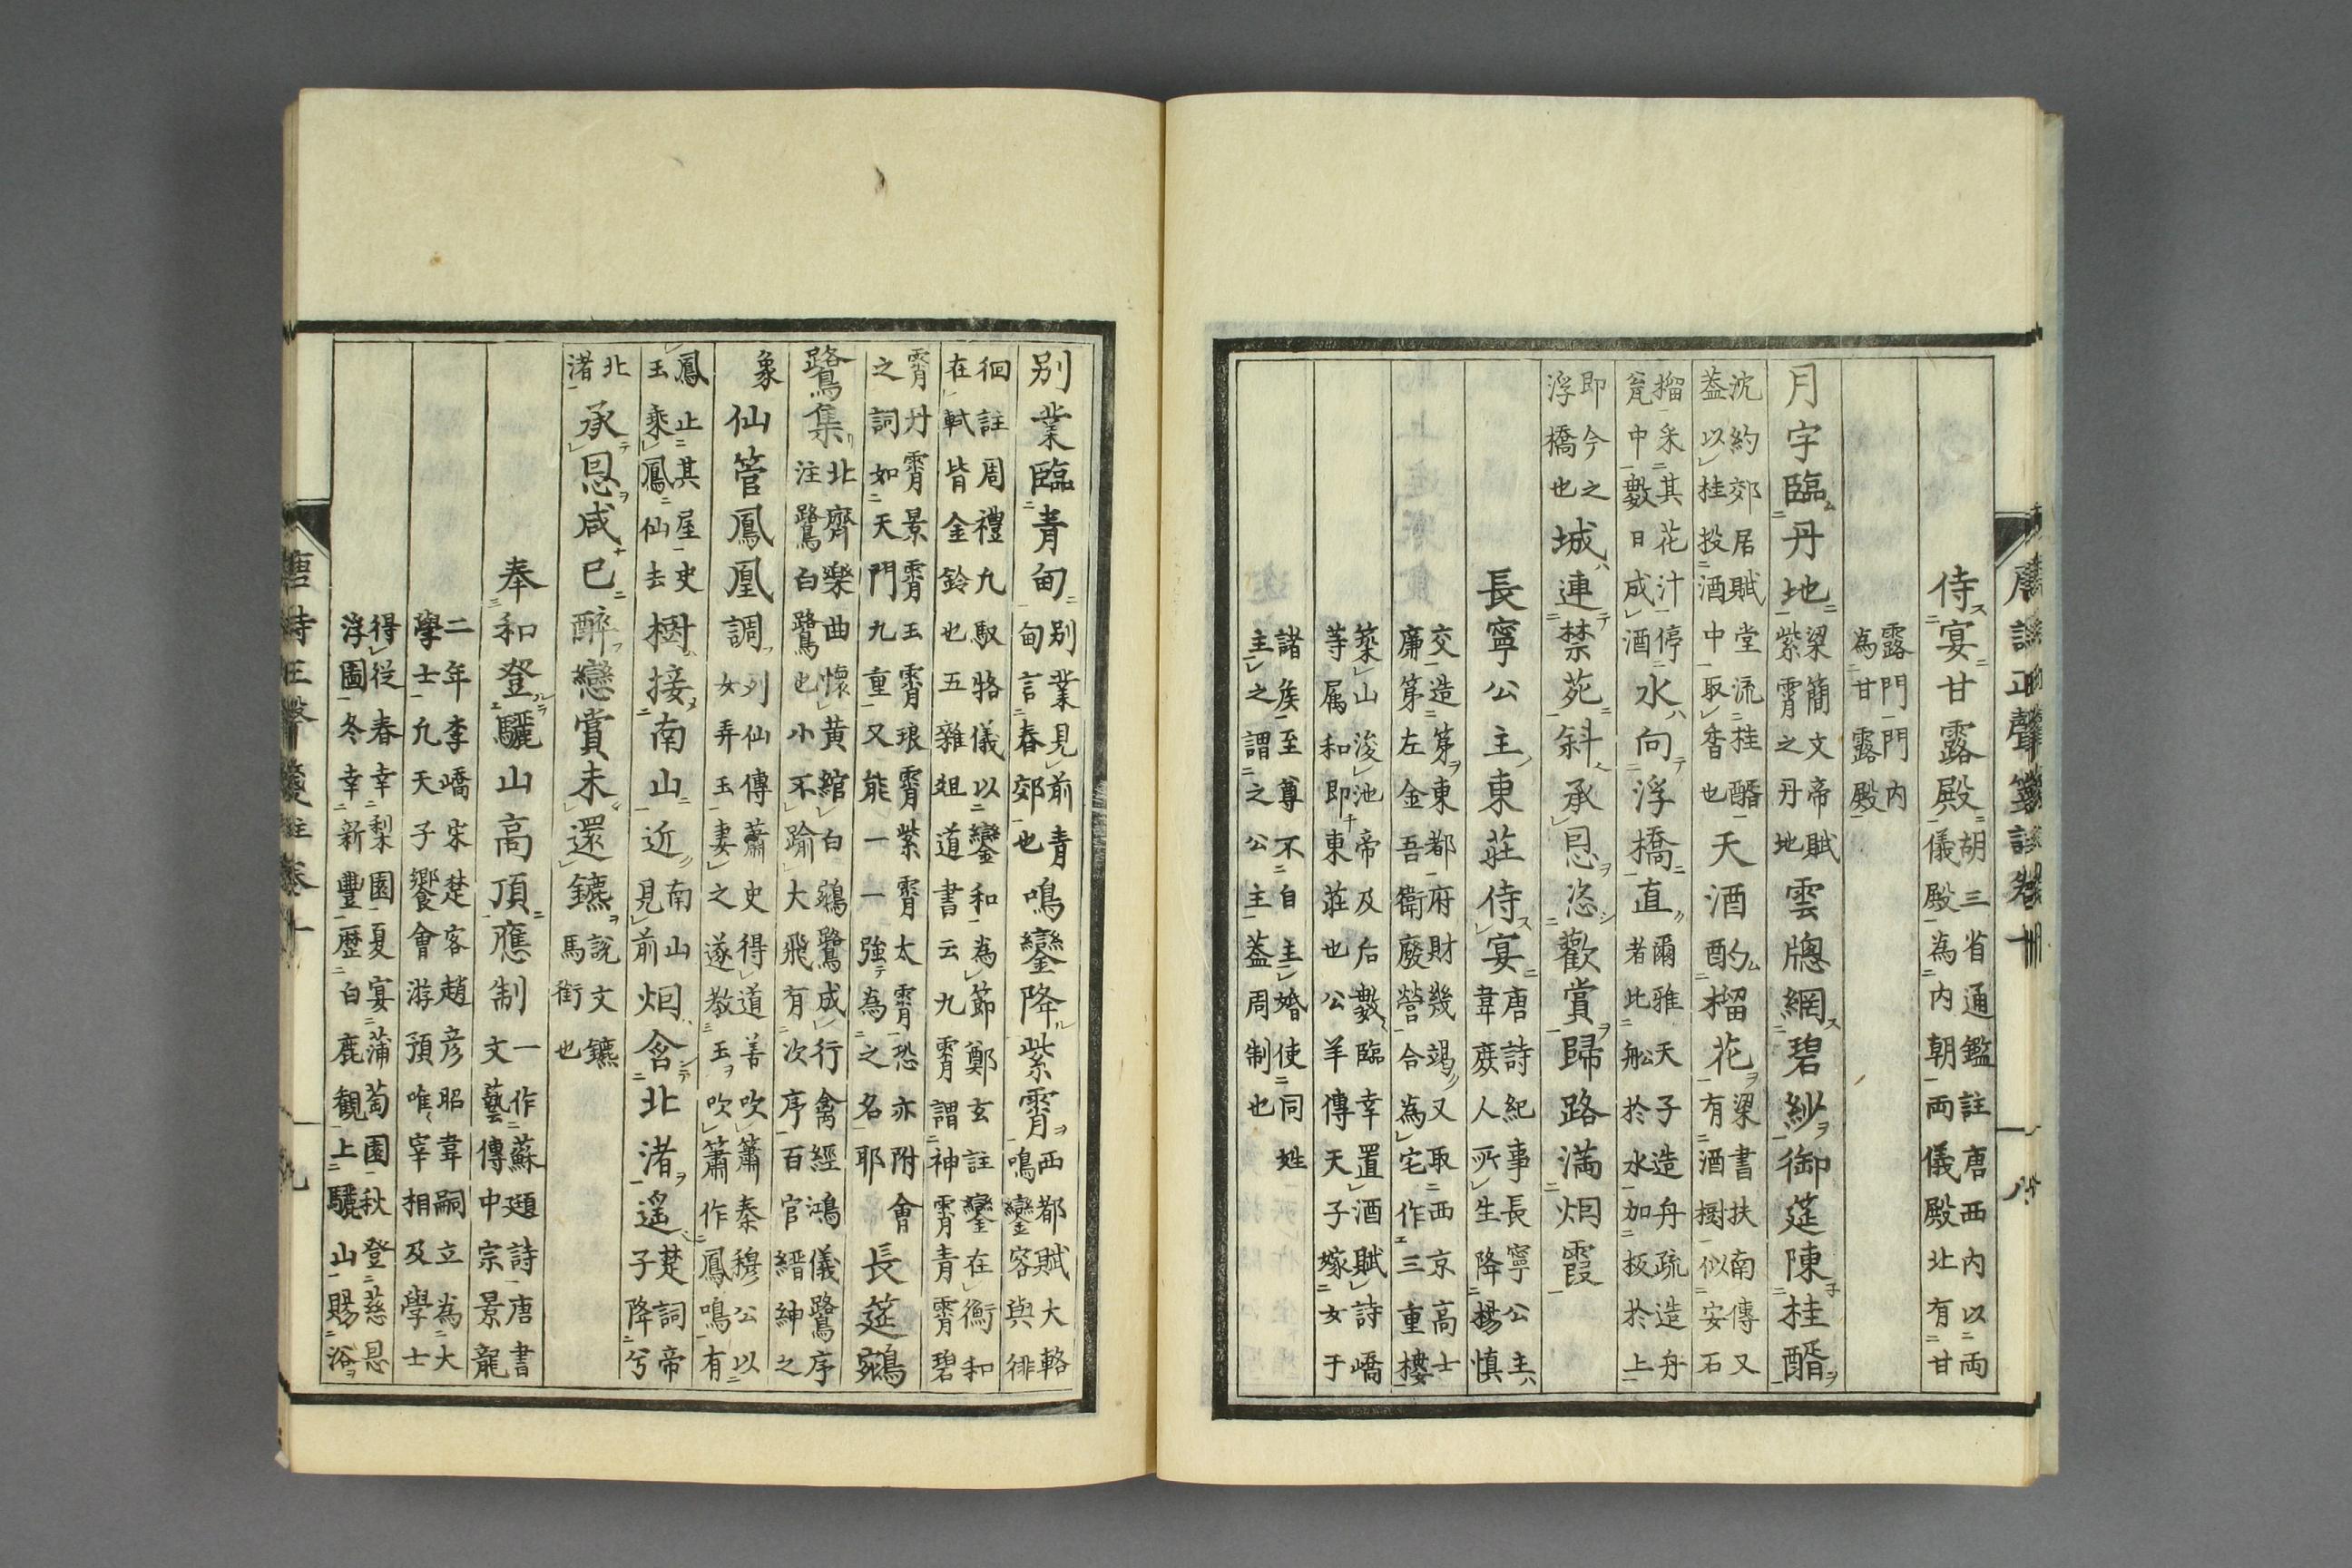 唐詩正聲箋註卷十
八
侍宴甘露殿胡三省通鑑註唐西内以両儀殿為内朝両儀殿北有甘
露門門内為甘露殿
月宇臨丹地梁簡文帝賦紫霄之丹地雲牕網碧紗御筵陳桂醑
沈約郊居賦堂流桂醑葢以桂投酒中取香也天酒酌榴花梁書扶南傳又有酒樹似安石
榴采其花汁停甕中數日成酒水向浮橋直爾雅天子造舟疏造舟者比舩於水加板於上
即今之浮橋也城連禁苑斜承恩恣歡賞歸路満烟霞
長寧公主東莊侍宴唐詩紀事長寧公主韋庶人所生降楊慎
交造第東都府財幾竭又取西京高士廉第左金吾衛廢營合為宅作三重樓
築山浚池帝及后數臨幸置酒賦詩嶠等属和即東莊也公羊傳天子嫁女于
諸矦至尊不自主婚使同姓主之謂之公主葢周制也
别業臨青甸别業見前青甸言春郊也鳴鑾降紫霄西都賦大輅鳴鑾容與徘
徊註周禮九馭輅儀以鑾和為節鄭玄註鑾在衡和在軾皆金鈴也五雜俎道書云九霄謂神霄青霄碧
霄丹霄景霄玉霄琅霄紫霄太霄恐亦附會之詞如天門九重又能一一強為之名耶長筵鵷
鷺集北齊樂曲懷黄綰白鵷鷺成行禽經鴻儀鷺序注鷺白鷺也小不踰大飛有次序百官縉紳之
象仙管鳳凰調列仙傳蕭史得道善吹簫秦穆公以女弄玉妻之遂教玉吹簫作鳳鳴有
鳳止其屋史玉乘鳳仙去樹接南山近南山見前烟含北渚遥楚詞帝子降兮
北渚承恩咸已醉戀賞未還鑣說文鑣馬銜也
奉和登驪山高頂應制一作蘇頲詩唐書文藝傳中宗景龍
二年李嶠宋楚客趙彦昭韋嗣立為大學士凢天子饗會游預唯宰相及學士
得從春幸梨園夏宴蒲萄園秋登慈恩浮圖冬幸新豐歴白鹿観上驪山賜浴
唐詩正聲箋註卷十
九